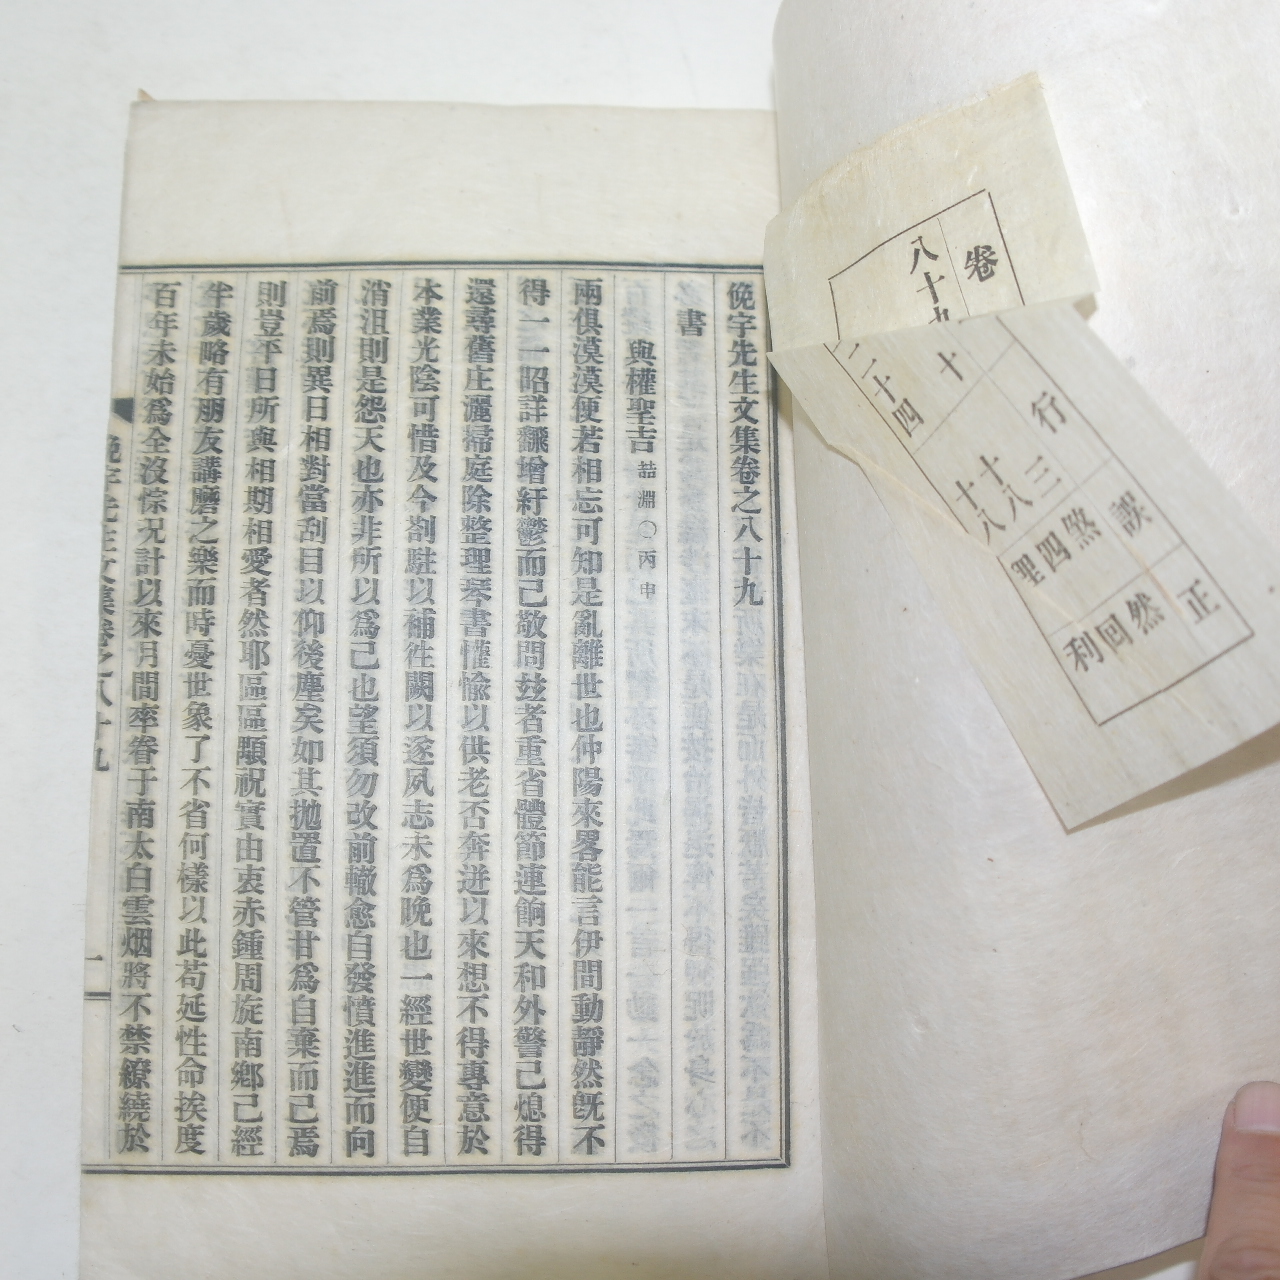 俛宇先生文集卷之八十九
書
與權聖吉喆淵〇丙申
兩俱漠漠便若相忘可知是亂離世也仲陽來畧能言伊間動靜然旣不
得一一昭詳飜增紆鬱而已敬問玆者重省體節連餉天和外警已熄得
還尋舊庄灑掃庭除整理琴書懽愉以供老否奔迸以來想不得專意於
本業光陰可惜及今剳駐以補徃闕以遂夙志未爲晩也一經世變便自
消沮則是怨天也亦非所以爲己也望須勿改前轍愈自發憤進進而向
前焉則異日相對當刮目以仰後塵矣如其抛置不管甘爲自棄而已焉
則豈平日所與相期相愛者然耶區區顒祝實由衷赤鍾周旋南鄕已經
半歲略有朋友講磨之樂而時憂世象了不省何樣以此苟延性命挨度
百年未始爲全沒悰况計以來月間率眷于南太白雲烟將不禁繚繞於
俛宇先生文集卷之八十九
一
卷 行 誤 正
八十九 十 三 煞 然
十八 四 回
二十四 十八 聖 利